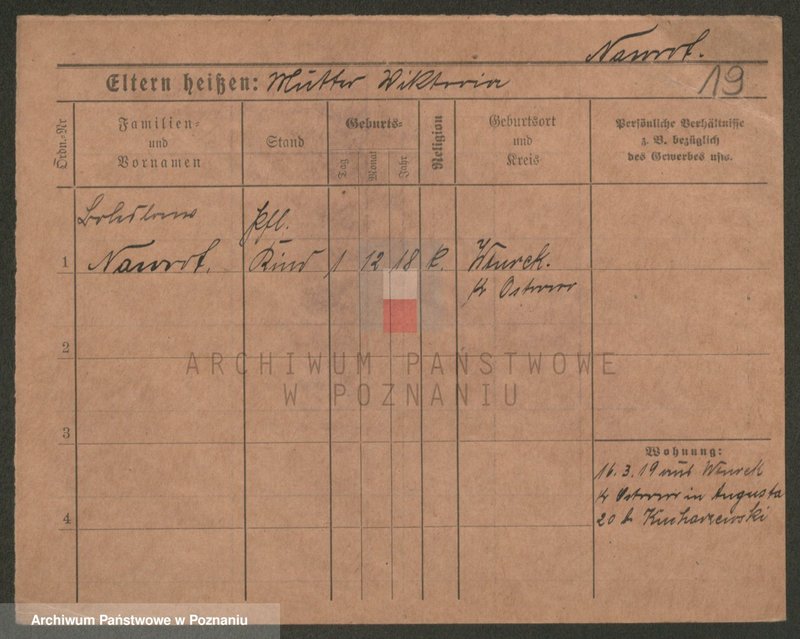 Nawrot.
19
Eltern heißen: Mutter Wiktoria
Ordn.-Nr
Familien-
und
Vornamen
Stand
Geburts-
Tag
Monat
Jahr
Religion
Geburtsort
und
Kreis
Persönliche Verhältnisse
z. B. bezüglich
des Gewerbes usw.
Boleslaus pfl.
1 Nawrot. Kind 1 12 18 k. Wturek.
Kr Ostrowo
2
ARCHIWUM PAŃSTWOWE
W POZNANIU
3
Wohnung:
16. 3. 19 aus Wturek
Kr Ostrowo in Augusta
20 b Kucharzewski
4
Archiwum Państwowe w Poznaniu